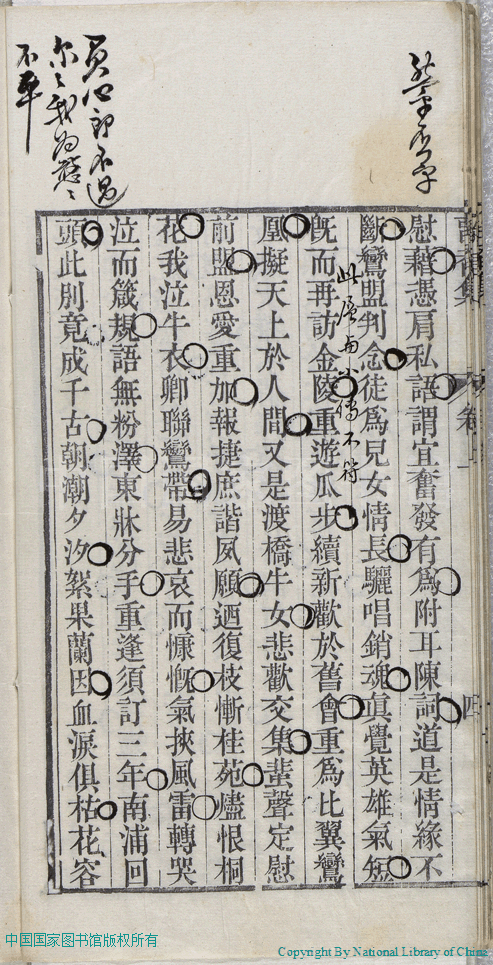 慰藉憑肩私語謂宜奮發有爲附耳陳詞道是情緣不
斷鸞盟判念徒爲兒女情長驪唱銷魂眞覺英雄氣短
旣而再訪金陵重遊瓜步續新歡於舊會重爲比翼鸞
凰擬天上於人間又是渡橋牛女悲歡交集蜚聲定慰
前盟恩愛重加報捷庶諧夙願迺復枝慚桂苑燼恨桐
花我泣牛衣卿聯鸞帶易悲哀而慷慨氣挾風雷轉哭
泣而箴規語無粉澤東牀分手重逢須訂三年南浦回
頭此別竟成千古朝潮夕汐絮果蘭因血淚俱枯花容
此處與小傳不符
負心郎不過
尔尔我为
不平
卷上
四
中国国家图书馆版权所有
Copyright By National Library of China